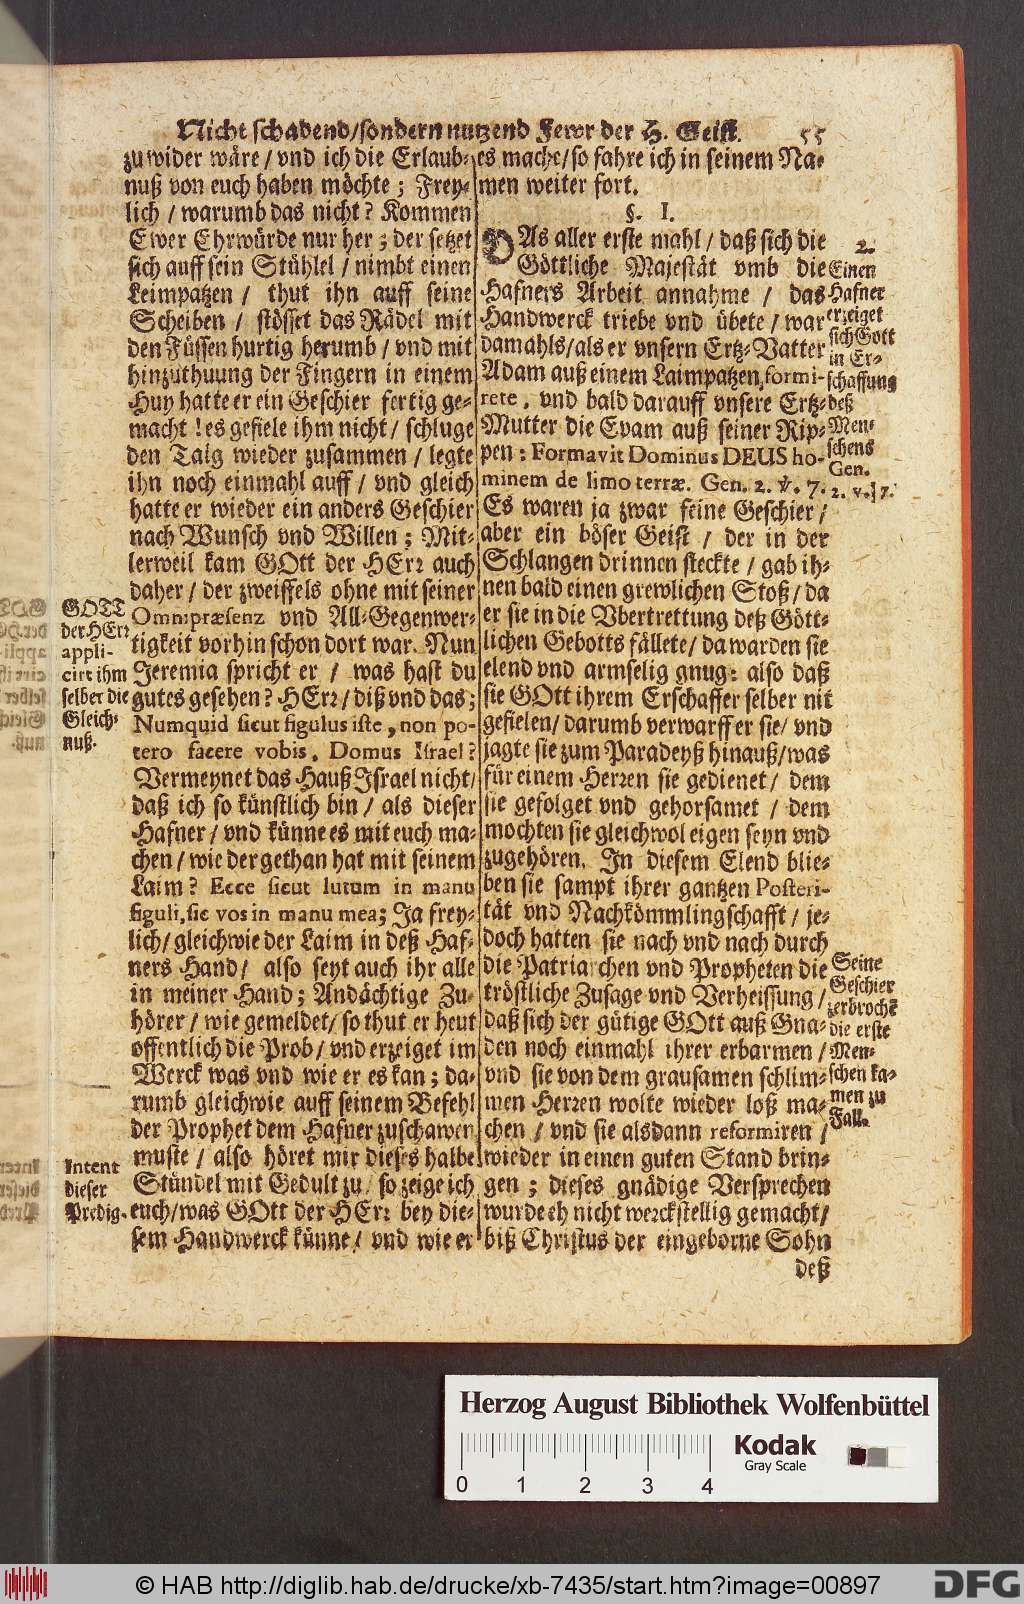 Nicht schadend/sondern nutzend Fewr der H. Geist. 55
zu wider wäre / vnd ich die Erlaub-
nuß von euch haben möchte; Frey-
lich / warumb das nicht? Kommen
Ewer Ehrwürde nur her; der setzet
sich auff sein Stühlel / nimbt einen
Leimpatzen / thut ihn auff seine
Scheiben / stösset das Rädel mit
den Füssen hurtig herumb / vnd mit
hinzuthuung der Fingern in einem
Huy hatte er ein Geschier fertig ge-
macht! es gefiele ihm nicht / schluge
den Taig wieder zusammen / legte
ihn noch einmahl auff / vnd gleich
hatte er wieder ein anders Geschier
nach Wunsch vnd Willen; Mit-
lerweil kam GOtt der HErr auch
daher / der zweiffels ohne mit seiner
Omnipræsenz vnd All-Gegenwer-
tigkeit vorhin schon dort war. Nun
Jeremia spricht er / was hast du
gutes gesehen? HErr / diß vnd das;
Numquid sicut figulus iste, non po-
tero facere vobis, Domus Israel?
Vermeynet das Hauß Israel nicht/
daß ich so künstlich bin / als dieser
Hafner / vnd künne es mit euch ma-
chen / wie der gethan hat mit seinem
Laim? Ecce sicut lutum in manu
figuli, sic vos in manu mea; Ja frey-
lich / gleichwie der Laim in deß Haf-
ners Hand / also seyt auch ihr alle
in meiner Hand; Andächtige Zu-
hörer / wie gemeldet / so thut er heut
offentlich die Prob / vnd erzeiget im
Werck was vnd wie er es kan; da-
rumb gleichwie auff seinem Befehl
der Prophet dem Hafner zuschawen
muste / also höret mir dieses halbe
Stündel mit Gedult zu / so zeige ich
euch/was GOtt der HErr bey die-
sem Handwerck künne / vnd wie er
GOTT
der HErr
appli-
cirt ihm
selber die
Gleich-
nuß.
Intent
dieser
Predig.
es mache/so fahre ich in seinem Na-
men weiter fort.
§. I.
DAs aller erste mahl / daß sich die
Göttliche Majestät vmb die
Hafners Arbeit annahme / das
Handwerck triebe vnd übete / war
damahls/als er vnsern Ertz-Vatter
Adam auß einem Laimpatzen formi-
rete, vnd bald darauff vnsere Ertz-
Mutter die Evam auß seiner Rip-
pen: Formavit Dominus DEUS ho-
minem de limo terræ. Gen. 2. v. 7.
Es waren ja zwar feine Geschier /
aber ein böser Geist / der in der
Schlangen drinnen steckte / gab ih-
nen bald einen grewlichen Stoß / da
er sie in die Vbertrettung deß Gött-
lichen Gebotts fällete / da warden sie
elend vnd armselig gnug: also daß
sie GOtt ihrem Erschaffer selber nit
gefielen / darumb verwarff er sie / vnd
jagte sie zum Paradeyß hinauß/was
für einem Herren sie gedienet / dem
sie gefolget vnd gehorsamet / dem
mochten sie gleichwol eigen seyn vnd
zugehören. In diesem Elend blie-
ben sie sampt ihrer gantzen Posteri-
tät vnd Nachkömmlingschafft / je-
doch hatten sie nach vnd nach durch
die Patriarchen vnd Propheten die
tröstliche Zusage vnd Verheissung /
daß sich der gütige GOtt auß Gna-
den noch einmahl ihrer erbarmen /
vnd sie von dem grausamen schlim-
men Herren wolte wieder loß ma-
chen / vnd sie alsdann reformiren /
wieder in einen guten Stand brin-
gen; dieses gnädige Versprechen
wurde eh nicht werckstellig gemacht/
biß Christus der eingeborne Sohn
deß
2.
Einen
Hafner
erzeiget
sich Gott
in Er-
schaffung
deß
Men-
schens
Gen.
2. v. 7.
Seine
Geschier
zerbrochẽ
die erste
Men-
schen ka-
men zu
Fall.
Herzog August Bibliothek Wolfenbüttel
0 1 2 3 4
Kodak
Gray Scale
© HAB http://diglib.hab.de/drucke/xb-7435/start.htm?image=00897
DFG